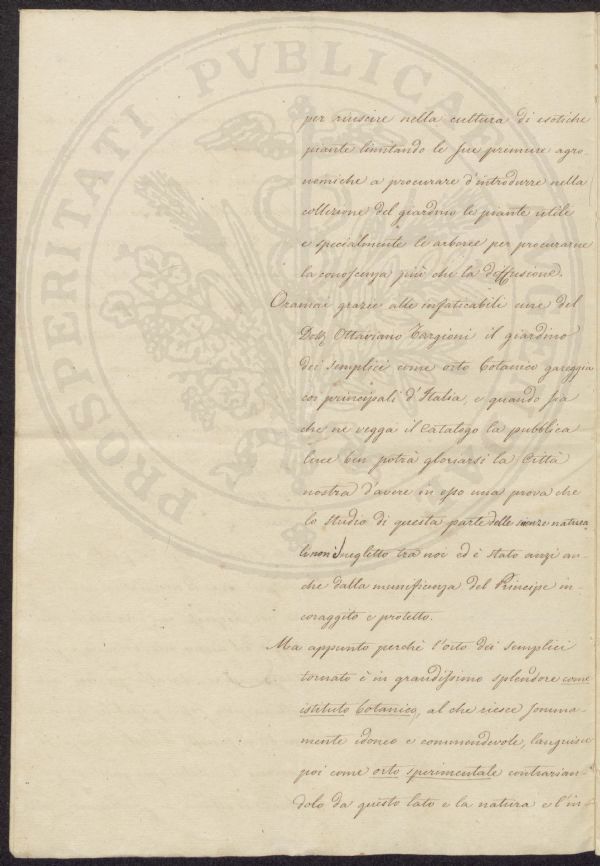 per riuscire nella cultura di esotiche
piante limitando le sue premure agro
nomiche a procurare d'introdurre nella
collezione del giardino le piante utile
e specialmente le arboree per procurarne
la conoscenza più che la diffusione.
Oramai grazie alle infaticabili cure del
Dott Ottaviano Targioni il giardino
dei semplici come orto botanico gareggia
coi principali d'Italia, e quando sia
che ne vegga il Catalogo la pubblica
luce ben potrà gloriarsi la Città
nostra d'avere in esso una prova che
lo studio di questa parte delle sienze natura
li non è negletto tra noi ed è stato anzi an-
che dalla munificenza del Principe in-
coraggito e protetto.
Ma appunto perchè l'orto dei semplici
tornato è in grandissimo splendore come
istituto botanico, al che riesce somma-
mente idoneo e commendevole, languisce
poi come orto sperimentale contrarian-
dolo da questo lato e la natura e l'in-
PROSPERITATI PVBLICAE